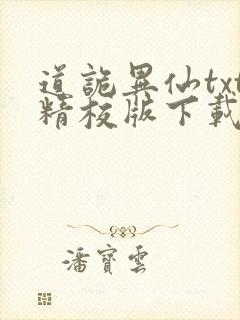 道詭異仙txt
精校版下載
潘寶雲